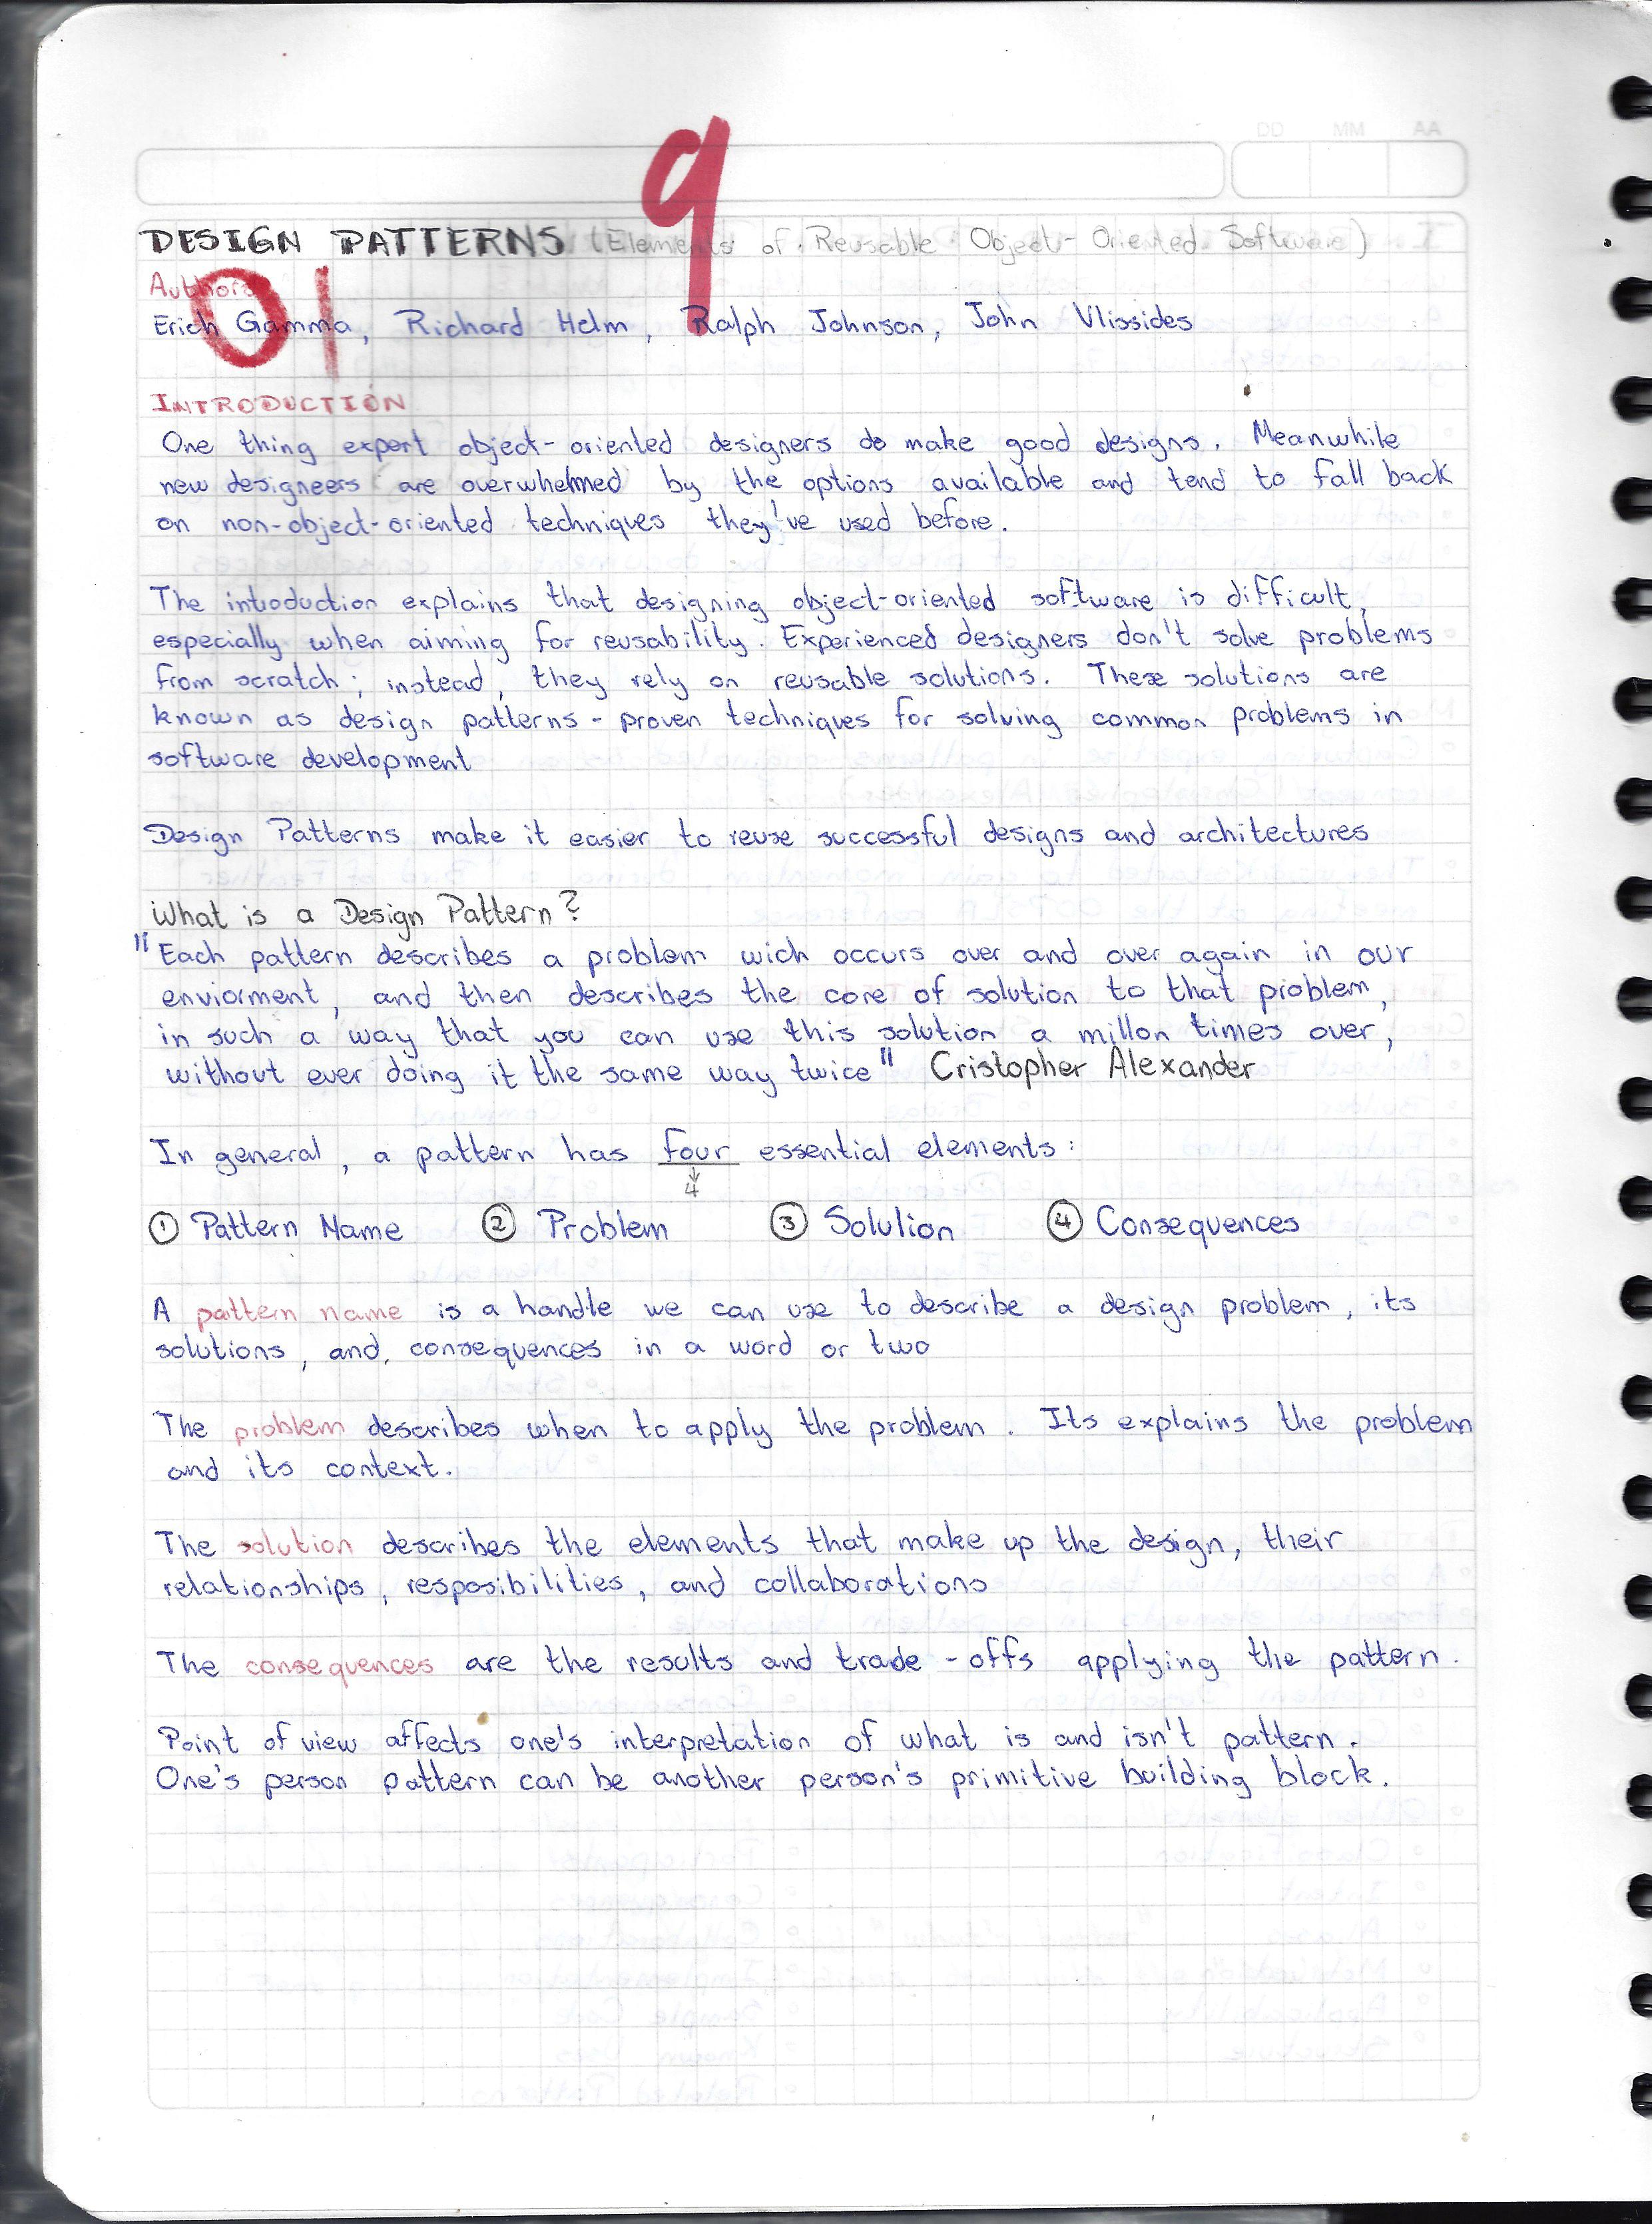 DD MM AA
9
DESIGN PATTERNS (Elements of Reusable Object-Oriented Software)
Authors
01
Erich Gamma, Richard Helm, Ralph Johnson, John Vlissides
INTRODUCTION
One thing expert object-oriented designers do make good designs. Meanwhile
new designeers are overwhelmed by the options available and tend to fall back
on non-object-oriented techniques they've used before.
The introduction explains that designing object-oriented software is difficult,
especially when aiming for reusability. Experienced designers don't solve problems
from scratch; instead, they rely on reusable solutions. These solutions are
known as design patterns - proven techniques for solving common problems in
software development
Design Patterns make it easier to reuse successful designs and architectures
What is a Design Pattern?
"Each pattern describes a problem wich occurs over and over again in our
enviorment, and then describes the core of solution to that problem,
in such a way that you can use this solution a millon times over,
without ever doing it the same way twice" Cristopher Alexander
In general, a pattern has four essential elements:
4
① Pattern Name ② Problem ③ Solution ④ Consequences
A pattern name is a handle we can use to describe a design problem, its
solutions, and, consequences in a word or two
The problem describes when to apply the problem. Its explains the problem
and its context.
The solution describes the elements that make up the design, their
relationships, resposibilities, and collaborations
The consequences are the results and trade-offs applying the pattern.
Point of view affects one's interpretation of what is and isn't pattern.
One's person pattern can be another person's primitive building block.